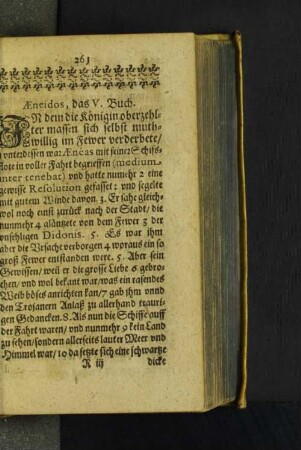 263
Æneidos, das V. Buch.
IN dem die Königin oberzehl-
ter massen sich selbst muth-
willig im Fewer verderbete/
vnterdessen war Æneas mit seiner Schiffs
flote in voller Fahrt begrieffen (medium
inter tenebat) vnd hatte numehr 2 eine
gewisse Resolution gefasset: vnd segelte
mit gutem Winde davon. 3. Er sahe gleich-
wol noch einst zurück nach der Stadt/ die
nunmehr 4 gläntzete von dem Fewer 3 der
vnsehligen Didonis. 5. Es war ihm
aber die Vrsach verborgen 4 woraus ein so
groß Fewer entstanden were. 5. Aber sein
Gewissen/ weil er die grosse Liebe 6 gebro-
chen/ vnd wol bekant war/ was ein rasendes
Weib böses anrichten kan/ 7 gab ihm vnnd
den Trojanern Anlaß zu allerhand trauri-
gen Gedancken. 8. Als nun die Schiffe auff
der Fahrt waren/ vnd nunmehr 9 kein Land
zu sehen/ sondern allerseits lauter Meer vnd
Himmel war/ 10 da setzte sich eine schwartze
R iij dicke